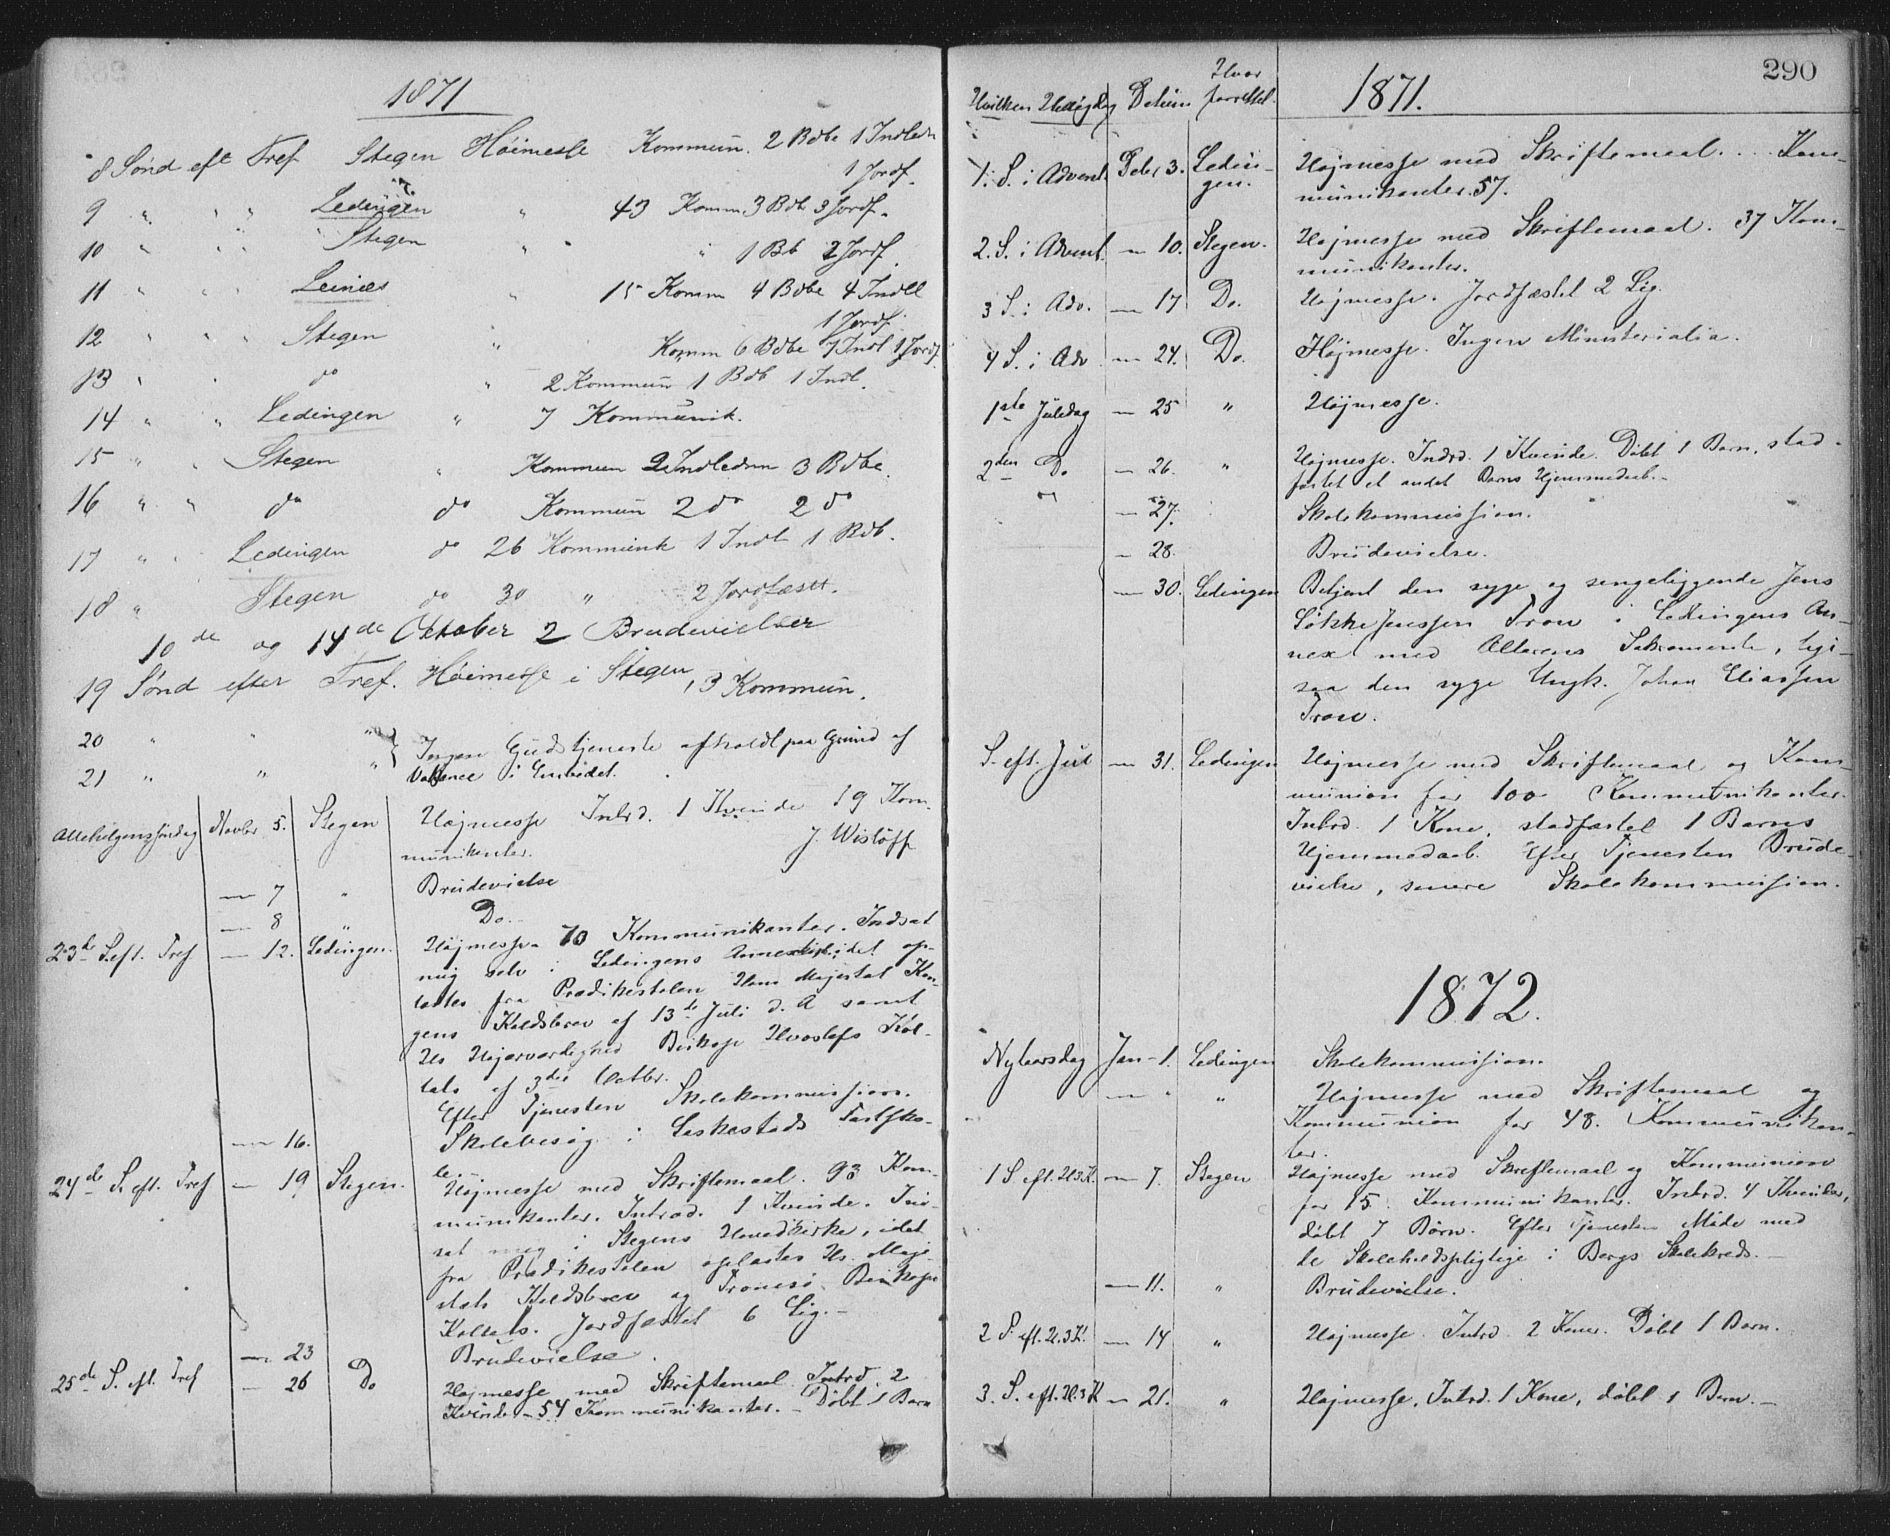 1871
8 Sønd eft Tref Stegen Høimesse Kommun. 2 Bdbe 1 Indledn
1 Jordf.
9 " " " Ledingen " 43 Komm 3 Bdb 3 Jordf.
10 " " " Stegen " " 1 Bb 2 Jordf.
11 " " " Leines " 15 Komm 4 Bdbe 4 Indll
1 Jordf.
12 " " " Stegen " Komm 6 Bdbe 7 Indl 1 Jordf.
13 " " do " 2 Kommun 1 Bdb 1 Indl.
14 " " Ledingen " 7 Kommunik.
15 " " Stegen " Kommun 2 Indledn 3 Bdbe.
16 " " do do Kommun 2 do 2 do
17 " " Ledingen do 26 Kommunk 1 Indl 1 Bdb.
18 " Stegen do 30 " 2 Jordfæst.
10de og 14de Oktober 2 Brudevielser
19 Sønd efter Tref. Høimesse i Stegen, 3 Kommun.
20 " " " Ingen Gudstjeneste afholdt paa Grund af
21 " " " Vakance i Embedet.
Allehelgensøndag Novbr 5. Stegen Højmesse Intrd. 1 Kvinde 19 Kom-
munikanter. J. Wisløff
— 7 " Brudevielse
— 8 " Do.
23de S. eft. Tref — 12. Ledingen. Højmesse. 70 Kommunikanter. Indsat
mig selv i Ledingens Annexkirke, idet op-
læstes fra Prædikestolen Hans Majestæt Kon-
gens Kaldsbrev af 13de Juli d. A samt
Hs Højærværdighed Biskop Hvoslefs Kol-
lats af 3die Octbr.
Efter Tjenesten Skolekommission.
— 16. Skolebesøg i Leskestads Fastsko-
le.
24de S. eft. Tref — 19 Stegen. Højmesse med Skriftemaal. 93 Kom-
munikanter. Introd. 1 Kvinde. Ind-
sat mig i Stegens Hovedkirke, idet
fra Prædikestolen oplæstes Hs. Maje-
stæts Kaldsbrev og Tromsø Biskops
Kollats. Jordfæstet 6 Lig.
— 23 Brudevielse.
25de S. eft. Tref — 26 Do Højmesse med Skriftemaal. Introd. 2
Kvinder. 54 Kommunikanter. — Døbt 1 Barn
290
Hvilken Helligdag Datum Hvor forrettet. 1871.
1. S. i Advent Decbr 3. Ledingen. Højmesse med Skriftemaal. ... Kom-
munikanter. 57.
2. S. i Advent. — 10. Stegen. Højmesse med Skriftemaal. 37 Kom-
munikanter.
3 S. i Adv. — 17 Do. Højmesse. Jordfæstet 2 Lig.
4 S. i Adv — 24. Do. Højmesse. Ingen Ministerialia.
1ste Juledag — 25 " Højmesse.
2den Do — 26. " Højmesse. Indrd. 1 Kvinde. Døbt 1 Barn, stad-
fæstet et andet Barns Hjemmedaab. —
— 27. Skolekommission.
— 28. Brudevielse.
— 30. Ledingen Betjent den syge og sengeliggende Jens
Løkke Jenssen Tron i Ledingens An-
nex med Alterens Sakramente, lige-
saa den syge Ungk. Johan Eliassen
Tron.
S. eft. Jul — 31. Ledingen Højmesse med Skriftemaal og Kom-
munion for 100 Kommunikanter.
Introd. 1 Kone, stadfæstet 1 Barns
Hjemmedaab. Efter Tjenesten Brude-
vielse, senere Skolekommission.
1872.
Nytaarsdag Jan. 1. Ledingen Skolekommission.
— " " Højmesse med Skriftemaal og
Kommunion for 48. Kommunikan-
ter.
1 S eft. H3K. — 7. Stegen Højmesse med Skriftemaal og Kommunion
for 15 Kommunikanter. Introd. 4 Kvinder,
døbt 7 Børn. Efter Tjenesten Møde med
de Skoleholdspligtige i Bergs Skolekreds. —
— 11. " Brudevielse.
2 S. eft. H.3K. — 14 " Højmesse. Introd. 2 Koner. Døbt 1 Barn.
3. S. eft. H.3K — 21. " Højmesse, Introd. 1 Kone, døbt 1 Barn. —